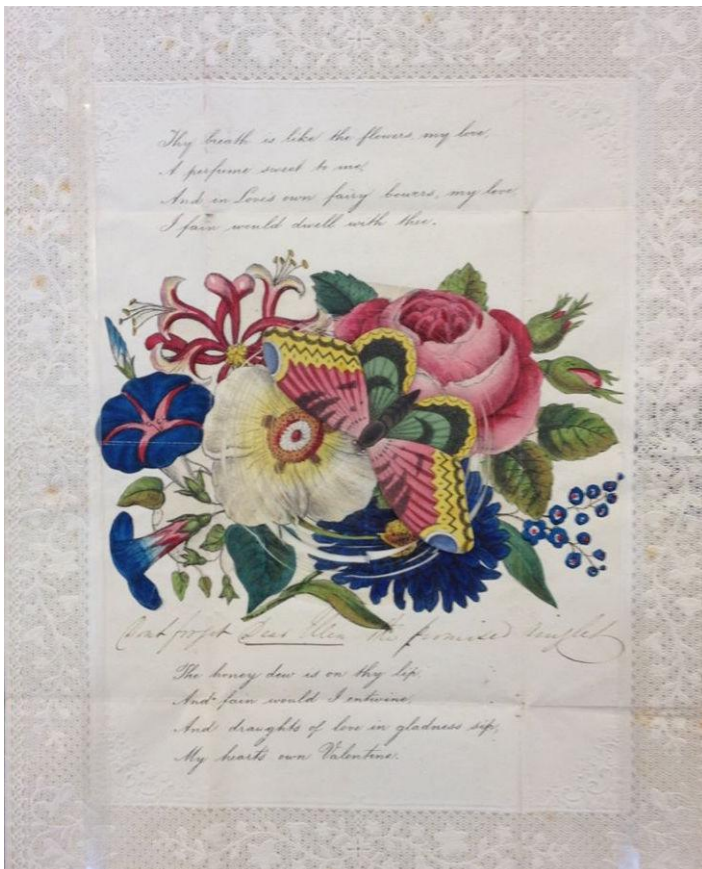 Thy breath is like the flowers, my love,
A perfume sweet to me,
And in Love's own fairy bowers, my love
I fain would dwell with thee.
Dont forget Dear Ellen the promised ringlet
The honey dew is on thy lip,
And fain would I entwine,
And draughts of love in gladness sip,
My hearts own Valentine.